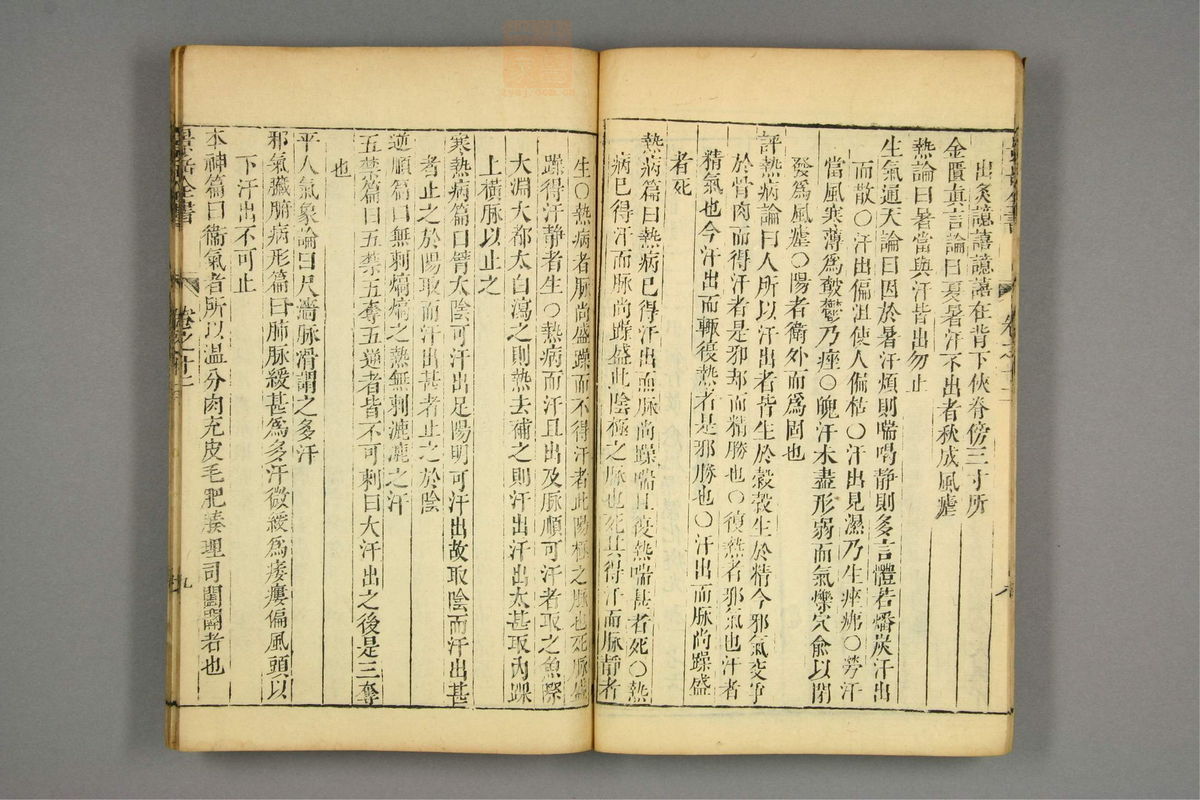 出灸譩譆譩譆在背下俠脊傍三寸所
金匱眞言論曰夏暑汗不出者秋成風瘧
熱論曰暑當與汗皆出勿止
生氣通天論曰因於暑汗煩則喘喝静則多言體若燔炭汗出
而散○汗出偏沮使人偏枯○汗出見濕乃生痤疿○勞汗
當風寒薄爲皶鬱乃痤○魄汗未盡形弱而氣爍穴俞以閉
發爲風瘧○陽者衛外而爲固也
評熱病論曰人所以汗出者皆生於穀穀生於精今邪氣交爭
於骨肉而得汗者是邪却而精勝也○復熱者邪氣也汗者
精氣也今汗出而輒復熱者是邪勝也○汗出而脉尚躁盛
者死
熱病篇曰熱病已得汗出而脉尚躁喘且復熱喘甚者死○熱
病已得汗而脉尚躁盛此陰極之脉也死其得汗而脉静者
生○熱病者脉尚盛躁而不得汗者此陽極之脉也死脉盛
躁得汗静者生○熱病而汗且出及脉順可汗者取之魚際
大淵大都太白瀉之則熱去補之則汗出汗出太甚取内踝
上橫脉以止之
寒熱病篇曰臂太陰可汗出足陽明可汗出故取陰而汗出甚
者止之於陽取而汗出甚者止之於陰
逆順篇曰無刺熇熇之熱無刺漉漉之汗
五禁篇曰五禁五奪五逆者皆不可刺曰大汗出之後是三奪
也
平人氣象論曰尺濇脉滑謂之多汗
邪氣臟腑病形篇曰肺脉緩甚爲多汗微緩爲痿瘻偏風頭以
下汗出不可止
本神篇曰衞氣者所以温分肉充皮毛肥腠理司開闔者也
景岳全書
卷之十二
九